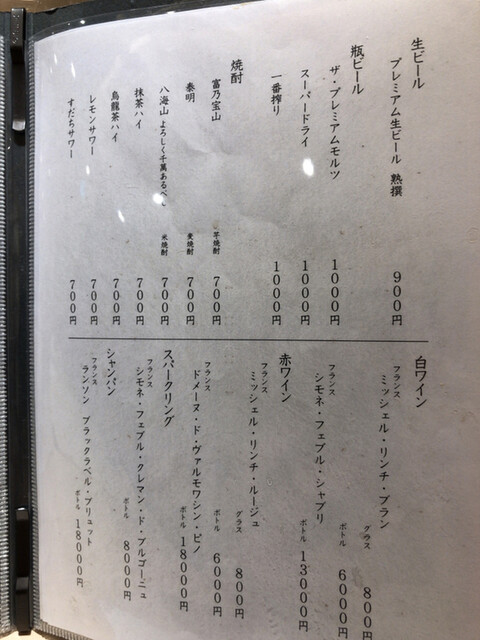 生ビール
プレミアム生ビール 熟撰 900円
瓶ビール
ザ・プレミアムモルツ 1000円
スーパードライ 1000円
一番搾り 1000円
焼酎
富乃宝山 芋焼酎 700円
泰明 麦焼酎 700円
八海山 よろしく千萬あるべし 米焼酎 700円
抹茶ハイ 700円
烏龍茶ハイ 700円
レモンサワー 700円
すだちサワー 700円
白ワイン
フランス
ミッシェル・リンチ・ブラン
グラス 800円
ボトル 6000円
フランス
シモネ・フェブル・シャブリ
ボトル 13000円
赤ワイン
フランス
ミッシェル・リンチ・ルージュ
グラス 800円
ボトル 6000円
フランス
ドメーヌ・ド・ヴァルモワシン・ピノ
ボトル 18000円
スパークリング
フランス
シモネ・フェブル・クレマン・ド・ブルゴーニュ
ボトル 8000円
シャンパン
フランス
ランソン ブラックラベル・ブリュット
ボトル 18000円